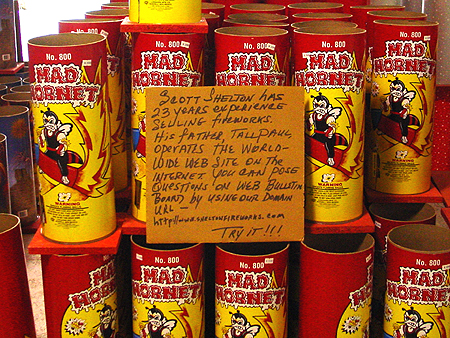 No. 800
MAD
HORNET
WARNING
No. 800
MAD
HORNET
No. 800
MAD
HORNET
No. 800
MAD
HORNET
WARNING
No. 800
MAD
HORNET
WARNING
SCOTT SHELTON HAS
23 YEARS EXPERIENCE
SELLING FIREWORKS.
HIS FATHER, TALL PAUL,
OPERATES THE WORLD-
WIDE WEB SITE ON THE
INTERNET. YOU CAN POSE
QUESTIONS ON WEB BULLETIN
BOARD BY USING OUR DOMAIN
URL -
http://www.sheltonsfireworks.com
TRY IT!!!
MAD
HORNET
No. 800
MAD
HORNET
No. 800
MAD
HORNET
MAD
HORNET
No. 800
MAD
HORNET